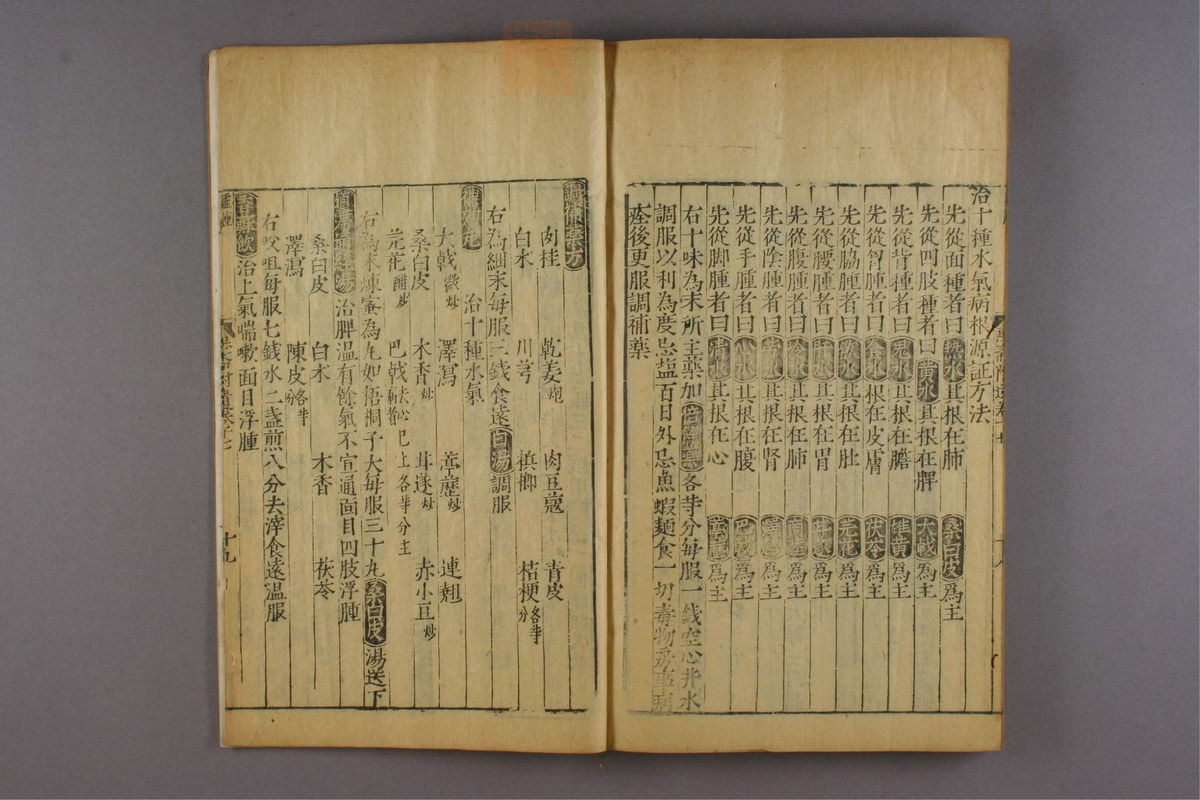 治十種水氣病根源証方法
先從面種者曰 水其根在肺 桑白皮為主
先從四肢種者曰黄水其根在脾 大戟為主
先從背種者曰鬼水其根在膽 為主
先從胷腫者曰食水根在皮膚 茯苓為主
先從脇腫者曰飲水其根在肚 芫花為主
先從腰腫者曰肝水其根在胃 甘遂為主
先從腹腫者曰 水其根在肺 為主
先從陰腫者曰 水其根在腎 澤瀉為主
先從手腫者曰心水其根在腹 巴戟為主
先從脚腫者曰清水其根在心 為主
右十味為末所主藥加 各等分每服一錢空心井水
調服以利為度忌塩百日外忌魚蝦麺食一切毒物房事病
痊後更服調補藥
調補藥方
肉桂 乾姜炮 肉豆蔲 青皮
白朮 川芎 檳榔 桔梗各等分
右為細末每服三錢食遠白湯調服
治十種水氣
大戟 炒 澤瀉 葶藶炒 連翹
桑白皮 木香炒 甘遂炒 赤小豆炒
芫花醋炒 巴戟去心 已上各等分主
右為末煉蜜為丸如梧桐子大每服三十丸桑白皮湯送下
治脾温有餘氣不宣通面目四肢浮腫
桑白皮 白朮 木香 茯苓
澤瀉 陳皮各等分
右㕮咀每服七錢水二盞煎八分去滓食遠温服
治上氣喘嗽面目浮腫
十九